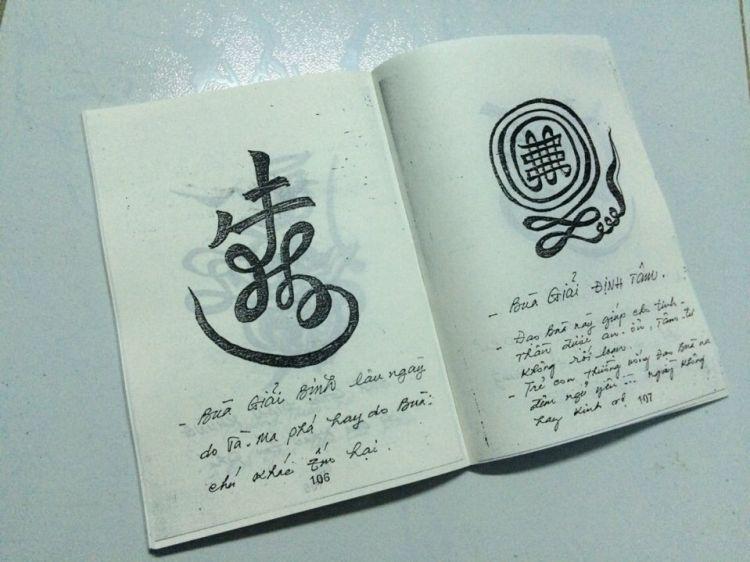 - BÙA GIẢI BỊNH lâu ngày
do Tà-Ma phá hay do Bùa.
chú khác ếm hại.
106
- BÙA GIẢI ĐỊNH TÂM.
- Đạo Bùa này giúp cho tinh-
thần được an-ổn, Tâm-tư
không rối loạn.
- Trẻ con thường uống Đạo Bùa nà
đêm ngủ yên ... ngày không
hay Kinh
107